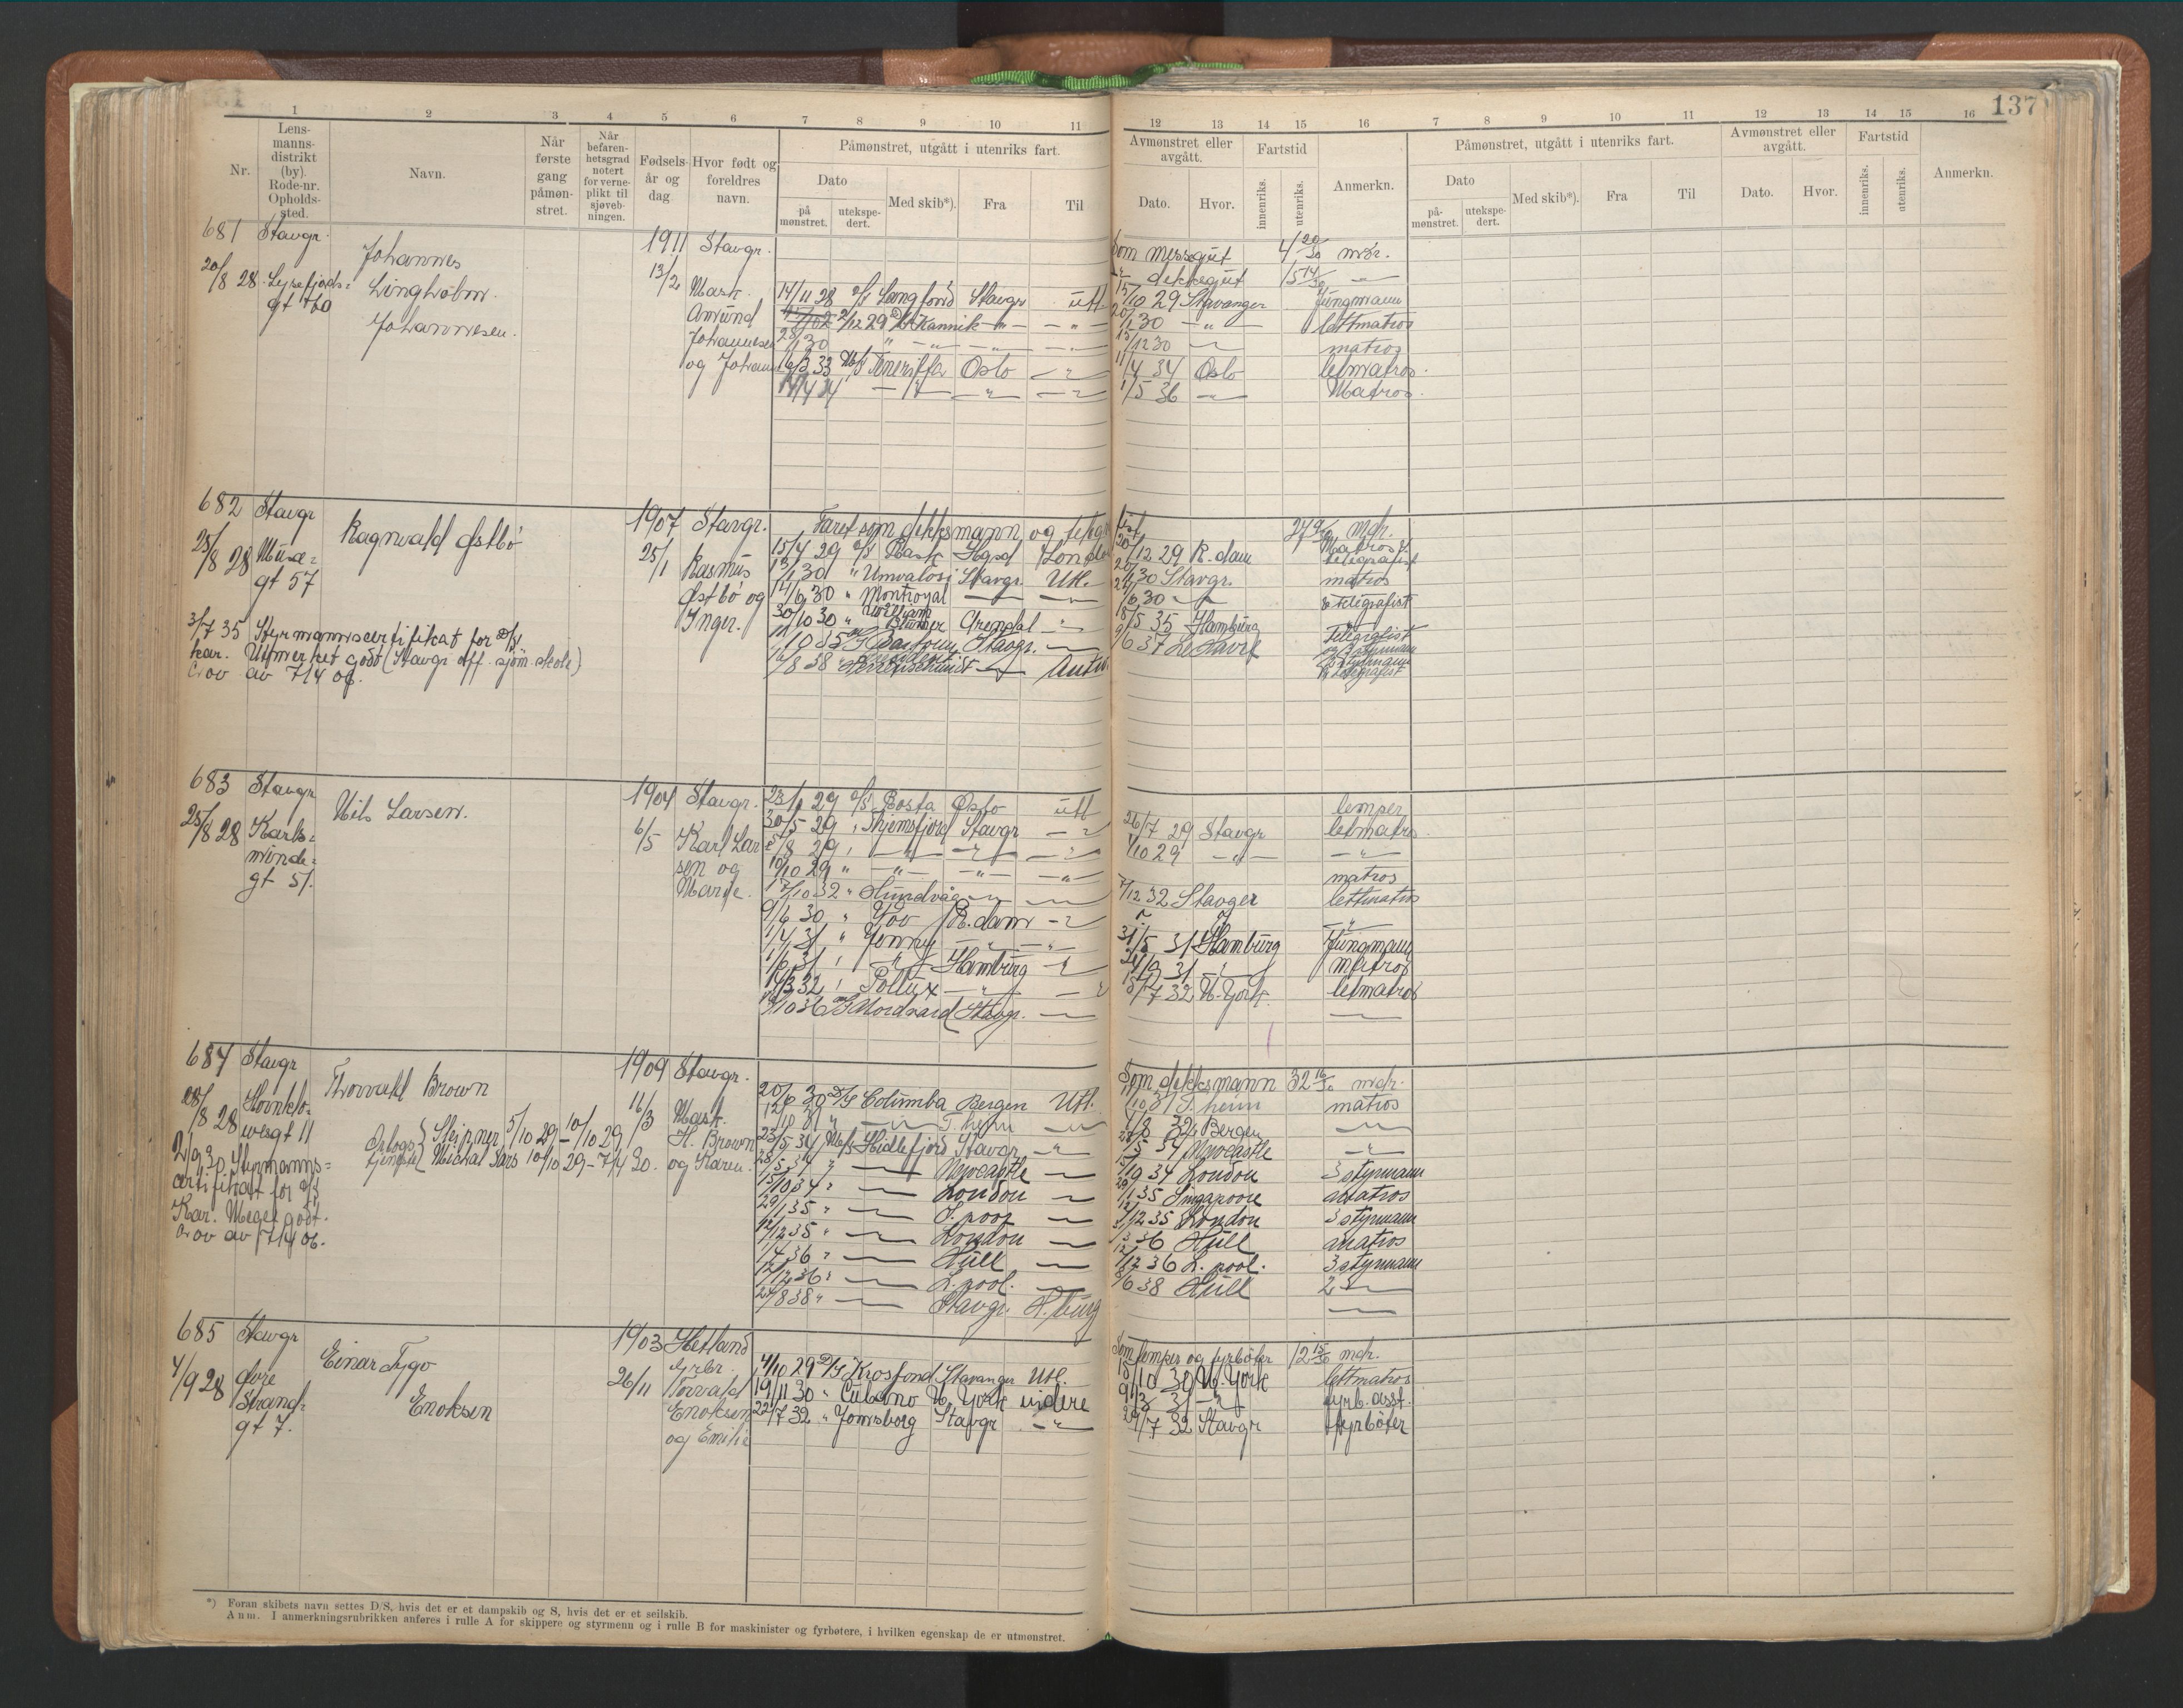 137
1 2 3 4 5 6 7 8 9 10 11
12 13 14 15 16 7 8 9 10 11 12 13 14 15 16
Nr.
Lens-
manns-
distrikt
(by).
Rode-nr.
Opholds-
sted.
Navn.
Når
første
gang
påmøn-
stret.
Når
befaren-
hetsgrad
notert
for verne-
plikt til
sjøveb-
ningen.
Fødsels-
år og
dag
Hvor født og
foreldres
navn.
Påmønstret, utgått i utenriks fart.
Dato
på
mønstret.
utekspe-
dert.
Med skib*).
Fra
Til
Avmønstret eller
avgått.
Dato.
Hvor.
Fartstid
innenriks.
utenriks.
Anmerkn.
Påmønstret, utgått i utenriks fart.
Dato
på-
mønstret.
utekspe-
dert.
Med skib*).
Fra
Til
Avmønstret eller
avgått.
Dato.
Hvor.
Fartstid
innenriks.
utenriks.
Anmerkn.
681 Stavgr.
20/8 28. Lysefjords=
gt
Johannes
Johannesen.
1911
13/2
Stavgr.
Mask.
Amund
Johannesen
og Johann
14/11 28 Langfond Stavgr utl.
2/12 29 Kannik — " —
16/3 33 M/S Teneriffa Oslo — " —
14/4 34 — " — — " — — " —
Som messegut 4 20/30 mdr.
" dekksgut
15/10 29 Stavanger Jungmann
30 — " — lettmatros
12 30 — " — matros
11/4 34 Oslo letmatros.
1/5 36 — " — Matros.
682 Stavgr
25/8 28 Muse=
gt 57
Ragnvald Østbö
1907
25/1
Stavgr.
Rasmus
Østbö og
Inger.
3/7 35 Styrmannscertifikat for D/S
kar. Utmerket godt (Stavgr. off. sjöm. skole)
Lov av 7/4 06.
Faret som dekksmann og telegr
15/4 29 Rask Hgsd London
1/1 30 " Umvalosi Stavgr. Utl.
6 30 " Montroyal — " —
30/10 30 " William Blumer Arendal — " —
Stavgr. — " —
/8 38 — " — Antw.
mdr.
12 29 R.dam Matros &
telegrafist
30 Stavgr. matros
6 30 — " — & telegrafist
18/5 35 Hamburg Telegrafist
6 37 Le Havre
683 Stavgr
25/8 28 Karls=
minde=
gt 51.
Nils Larsen.
1904
6/5
Stavgr.
Karl Lar
sen og
Marie.
29 D/S Rosta Oslo utl
30/5 29 " Skjemsfjord Stavgr — " —
/8 29 " — " — — " — — " —
10/10 29 " — " — — " — — " —
17/10 32 " Hundvåg — " — — " —
9/6 30 " Gov R.dam — " —
1/4 31 " Jenny — " — — " —
1/6 31 " — " — Hamburg — " —
14/3 32 " Pollux — " — — " —
/10 36 Nordvard Stavgr. — " —
lemper
26/7 29 Stavgr letmatros
/10 29 — " — — " —
matros
7/12 32 Stavger lettmatros
31/5 31 Hamburg Jungmann
31 — " — matros
/7 32 N. York. letmatros
684 Stavgr
28/8 28 Hornklo=
vesgt 11
Thorvald Brown
1909
16/3
Stavgr.
Mask.
H. Brown
og Karen.
Orlogs
tjeneste { Sleipner 5/10 29 – 10/10 29
Michal Sars 10/10 29 – 7/4 30.
2/9 30 Styrmanns=
certifikat for D/S
Kar. Meget godt.
Lov av 7/4 06.
20/6 30 D/S Columba Bergen Utl.
12/10 31 " — " — T.heim — " —
23/5 34 M/S Hidlefjord Stavgr — " —
28/5 34 " — " — Newcastle — " —
15/10 34 " — " — London — " —
29/1 35 " — " — S. poor — " —
12/12 35 " — " — London — " —
1/4 36 " — " — Hull — " —
12/12 36 " — " — L. pool. — " —
24/8 38 " — " — Stavgr. H.burg
Som dekksmann 32 16/30 mdr.
/10 31 T.heim matros
4/8 32 Bergen — " —
28/5 34 Newcastle — " —
15/10 34 London 3 styrmann
29/1 35 Singapoore matros
12/12 35 London 3 styrmann
3 36 Hull matros
12/12 36 L. pool. 3 styrmann
8/6 38 Hull 2 — " —
685 Stavgr
4/9 28 Øvre
Strand=
gt 7.
Einar Tygo
Enoksen
1903
26/11
Hetland
fyrbr.
Torvald
Enoksen
og Emilie
4/10 29 D/S Krosfond Stavanger Utl.
19/11 30 " Cubano N. York videre
22/7 32 " Jomsborg Stavgr — " —
Som lemper og fyrböter 12 15/30 mdr.
15/10 30 N. York lettmatros
9/3 31 — " — fyrb. asst.
29/7 32 Stavgr fyrböter
*) Foran skibets navn settes D/S, hvis det er et dampskib og S, hvis det er et seilskib.
Anm. I anmerkningsrubrikken anføres i rulle A for skippere og styrmenn og i rulle B for maskinister og fyrbøtere, i hvilken egenskap de er utmønstret.